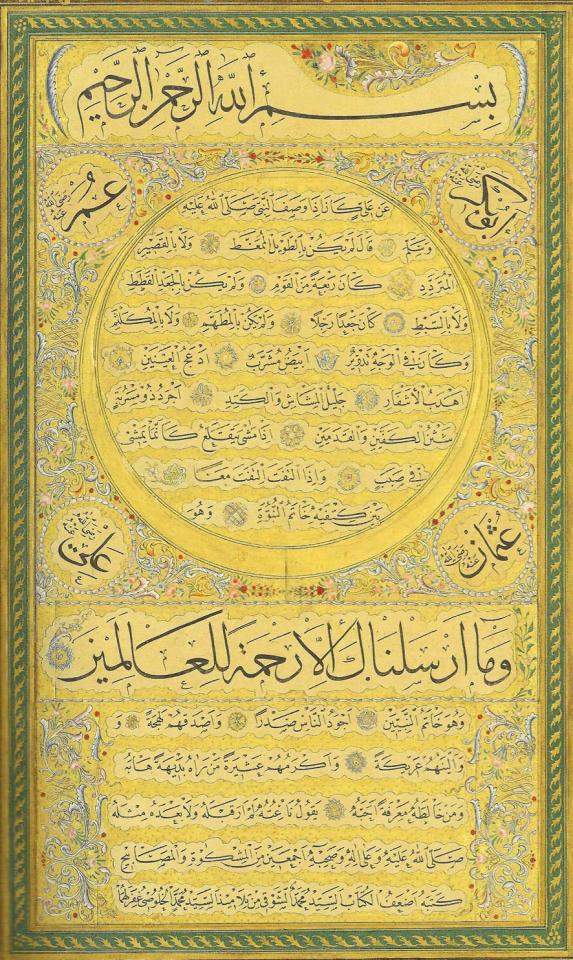 بسم الله الرحمن الرحيم
ابوبكر رضي الله عنه
عمر رضي الله عنه
عن علي كان اذا وصف النبي صلى الله عليه
وسلم قال لم يكن بالطويل الممغط ولا بالقصير
المتردد كان ربعة من القوم ولم يكن بالجعد القطط
ولا بالسبط كان جعدا رجلا ولم يكن بالمطهم ولا بالمكلثم
وكان في الوجه تدوير ابيض مشرب ادعج العينين
اهدب الاشفار جليل المشاش والكتد اجرد ذو مسربة
شثن الكفين والقدمين اذا مشى يتقلع كانما يمشي
في صبب واذا التفت التفت معا
بين كتفيه خاتم النبوة وهو
عثمان رضي الله عنه
علي رضي الله عنه
وما ارسلناك الا رحمة للعالمين
وهو خاتم النبيين اجود الناس صدرا واصدقهم لهجة و
والينهم عريكة واكرمهم عشيرة من راه بديهة هابه
ومن خالطه معرفة احبه يقول ناعته لم ار قبله ولا بعده مثله
صلى الله عليه وعلى اله وصحبه اجمعين من المشكوة والمصابيح
كتبه اضعف الكتاب السيد محمد الشوقي من تلاميذ السيد محمد الخلوصي غفر لهما